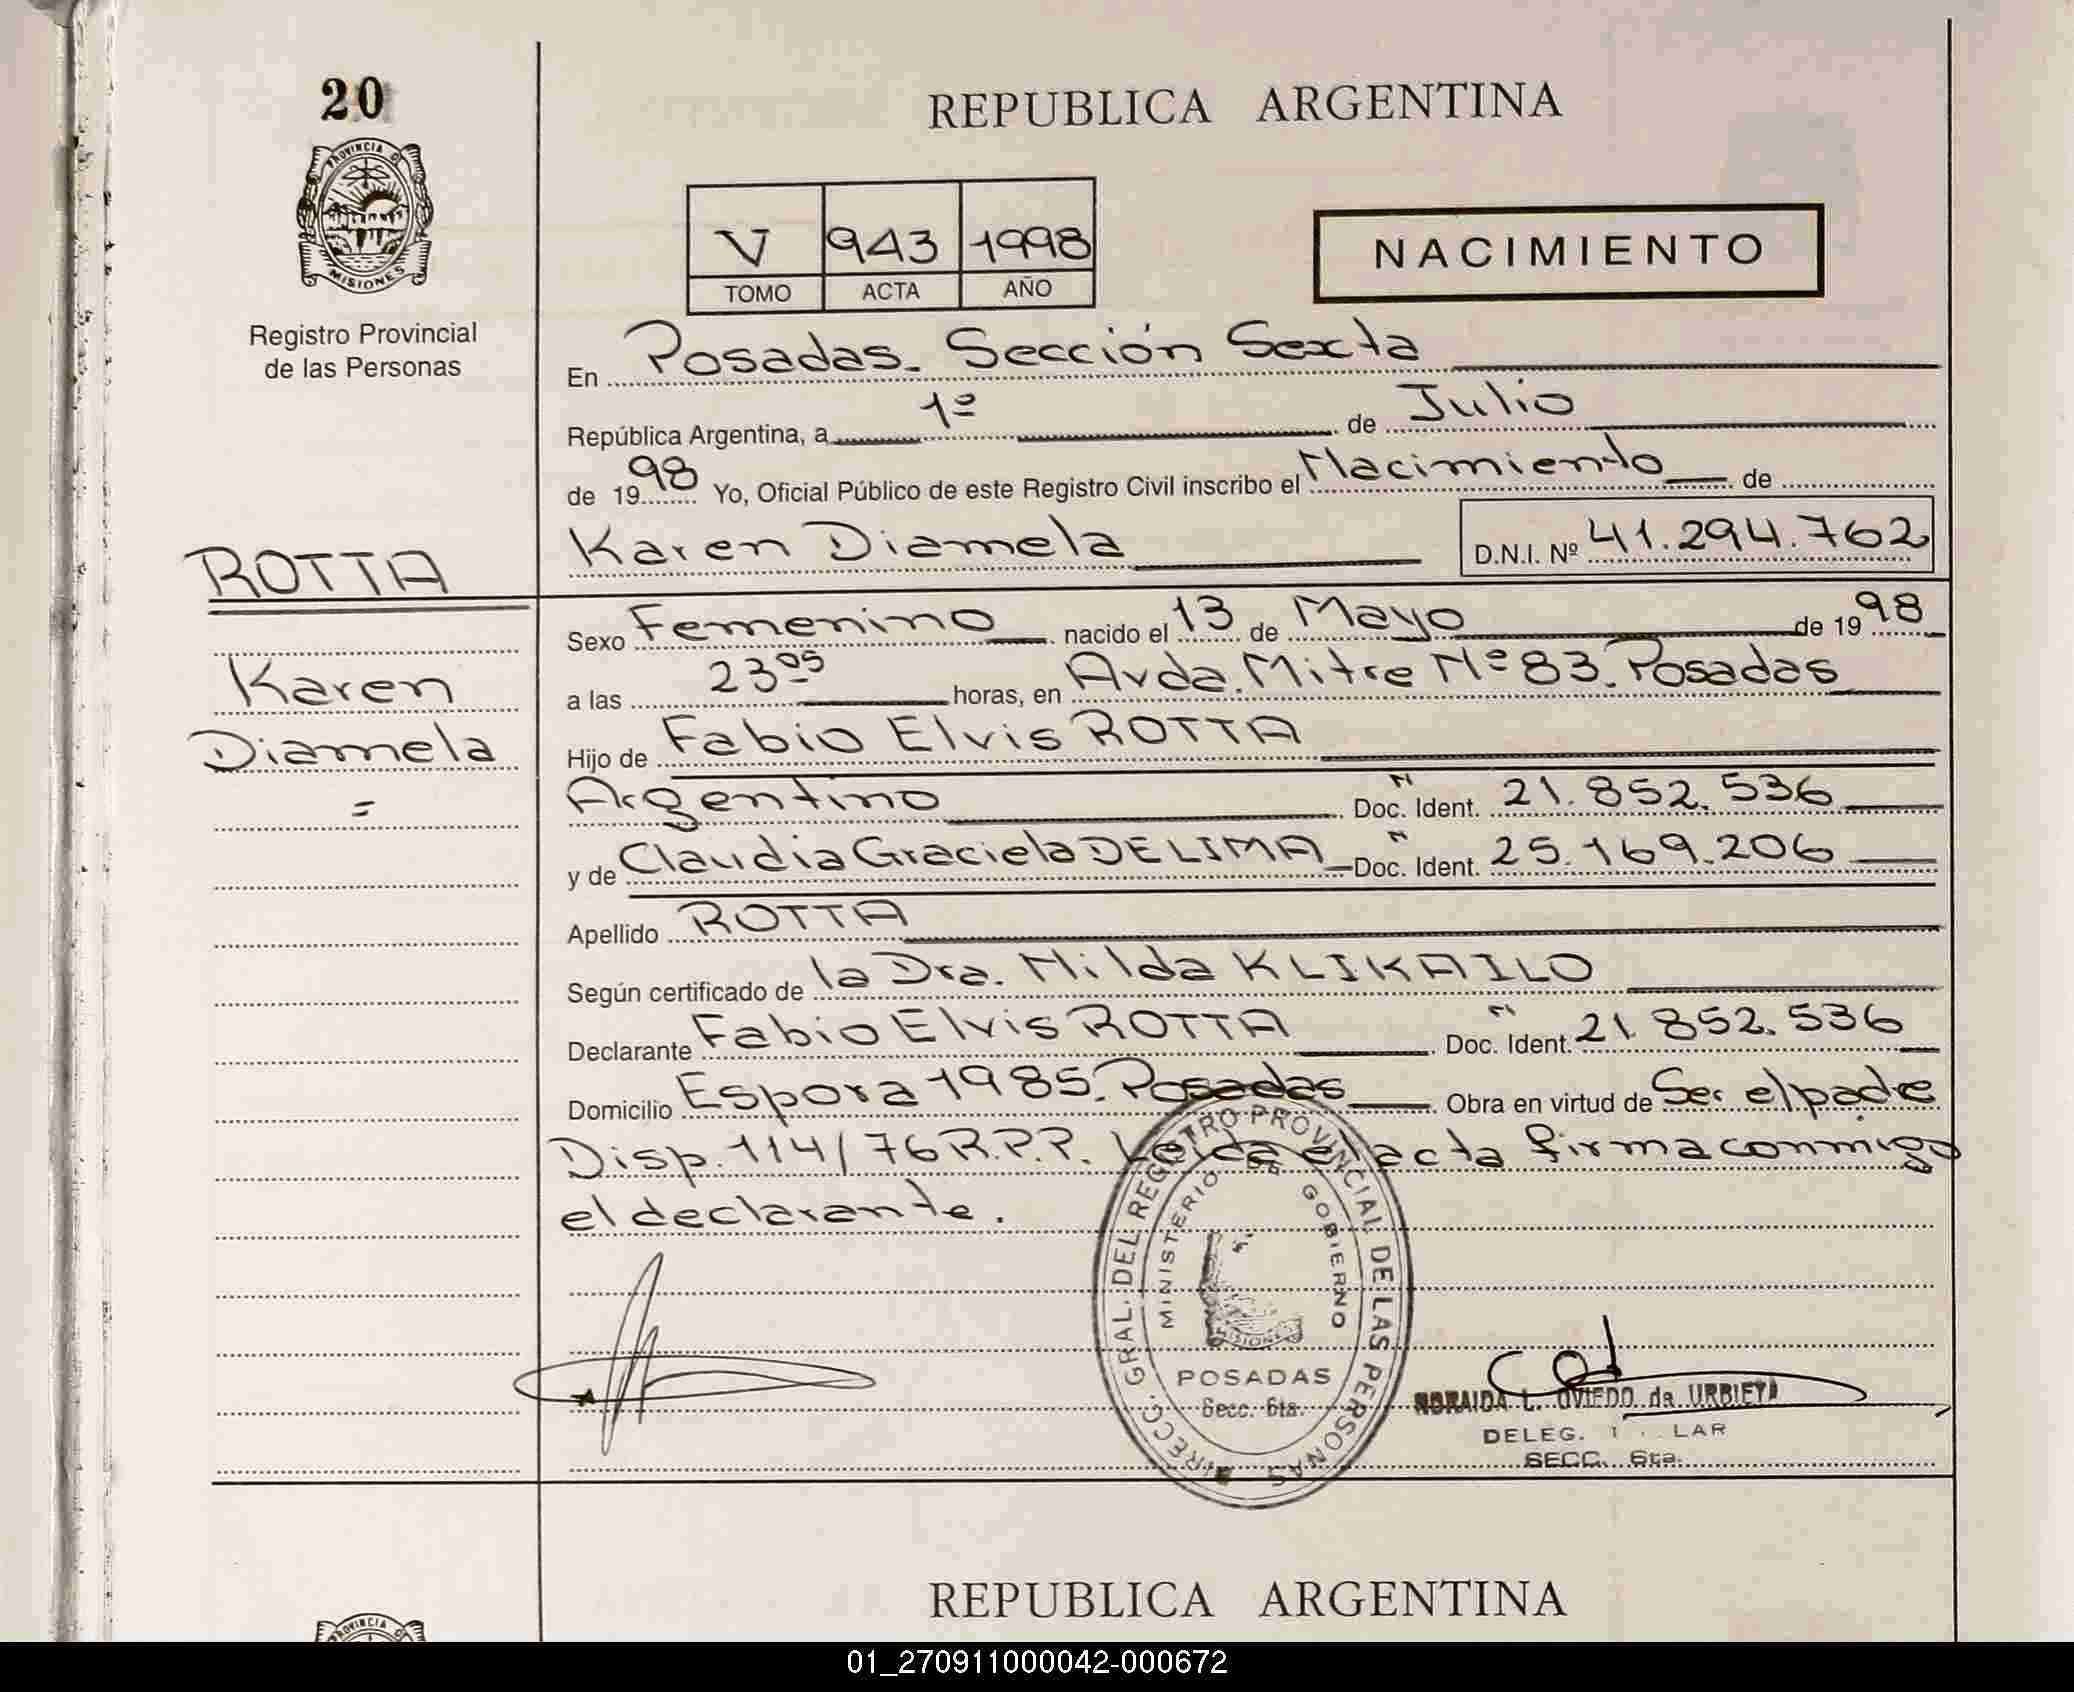 20
REPUBLICA ARGENTINA
PROVINCIA D
MISIONES
Registro Provincial
de las Personas
V 943 1998
TOMO ACTA AÑO
NACIMIENTO
En Posadas. Sección Sexta
República Argentina, a 1º de Julio
de 1998 Yo, Oficial Público de este Registro Civil inscribo el Nacimiento de
Karen Diamela D.N.I. Nº 41.294.762
ROTTA
Karen
Diamela
=
Sexo Femenino nacido el 13 de Mayo de 1998
a las 23 05 horas, en Avda. Mitre Nº 83. Posadas
Hijo de Fabio Elvis ROTTA
Argentino Doc. Ident. 21.852.536
y de Claudia Graciela DELIMA Doc. Ident. 25.169.206
Apellido ROTTA
Según certificado de la Dra. Nilda KLIKAILO
Declarante Fabio Elvis ROTTA Doc. Ident. 21.852.536
Domicilio Espora 1985. Posadas Obra en virtud de Ser el padre
Disp. 114/76 R.P.P. Leida el acta firma conmigo
el declarante.
DIRECC. GRAL. DEL REGISTRO PROVINCIAL DE LAS PERSONAS
MINISTERIO DE GOBIERNO
MISIONES
POSADAS
Secc. 6ta.
NORAIDA L. OVIEDO de URBIETA
DELEG. LAR
SECC. 6ta.
REPUBLICA ARGENTINA
PROVINCIA D
01_270911000042-000672